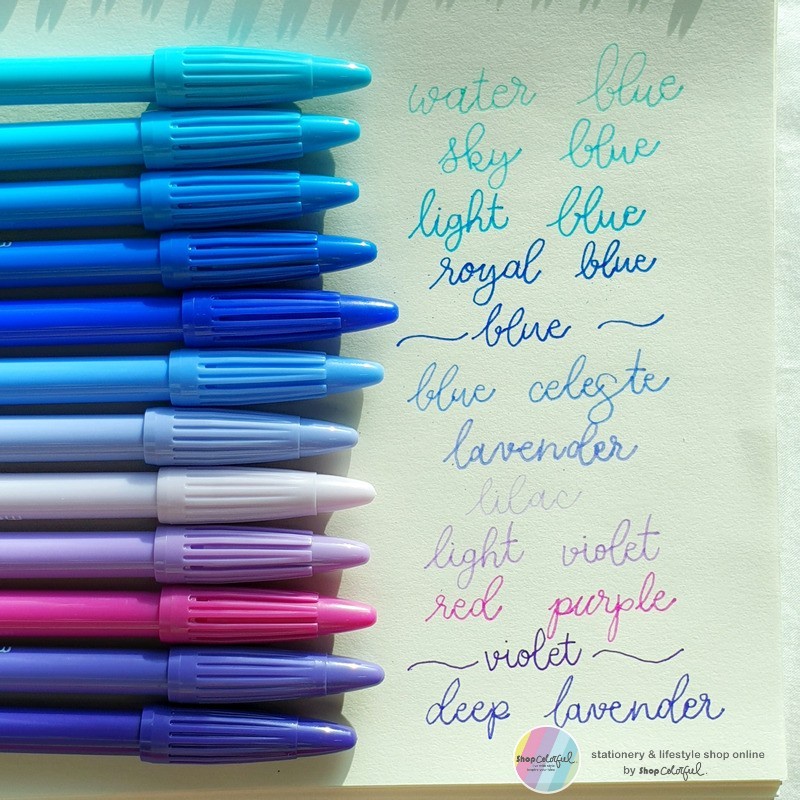 water blue
sky blue
light blue
royal blue
blue
blue celeste
lavender
lilac
light violet
red purple
violet
deep lavender
Shop Colorful.
stationery & lifestyle shop online
by Shop Colorful.